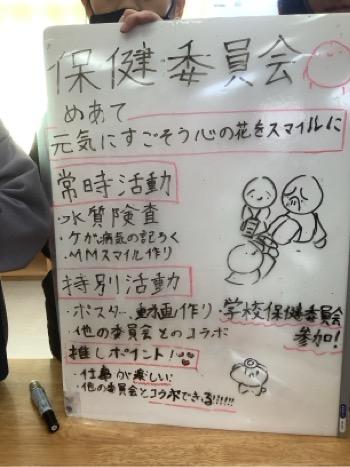 保健委員会
めあて
元気にすごそう心の花をスマイルに
常時活動
・水質険査
・ケガ病気の記ろく
・MMスマイル作り
特別活動
・ポスター、動画作り・学校保健委員会
参加!
・他の委員会とのコラボ
推しポイント!
・仕事が楽しい!
・他の委員会とコラボできる!!!!!!